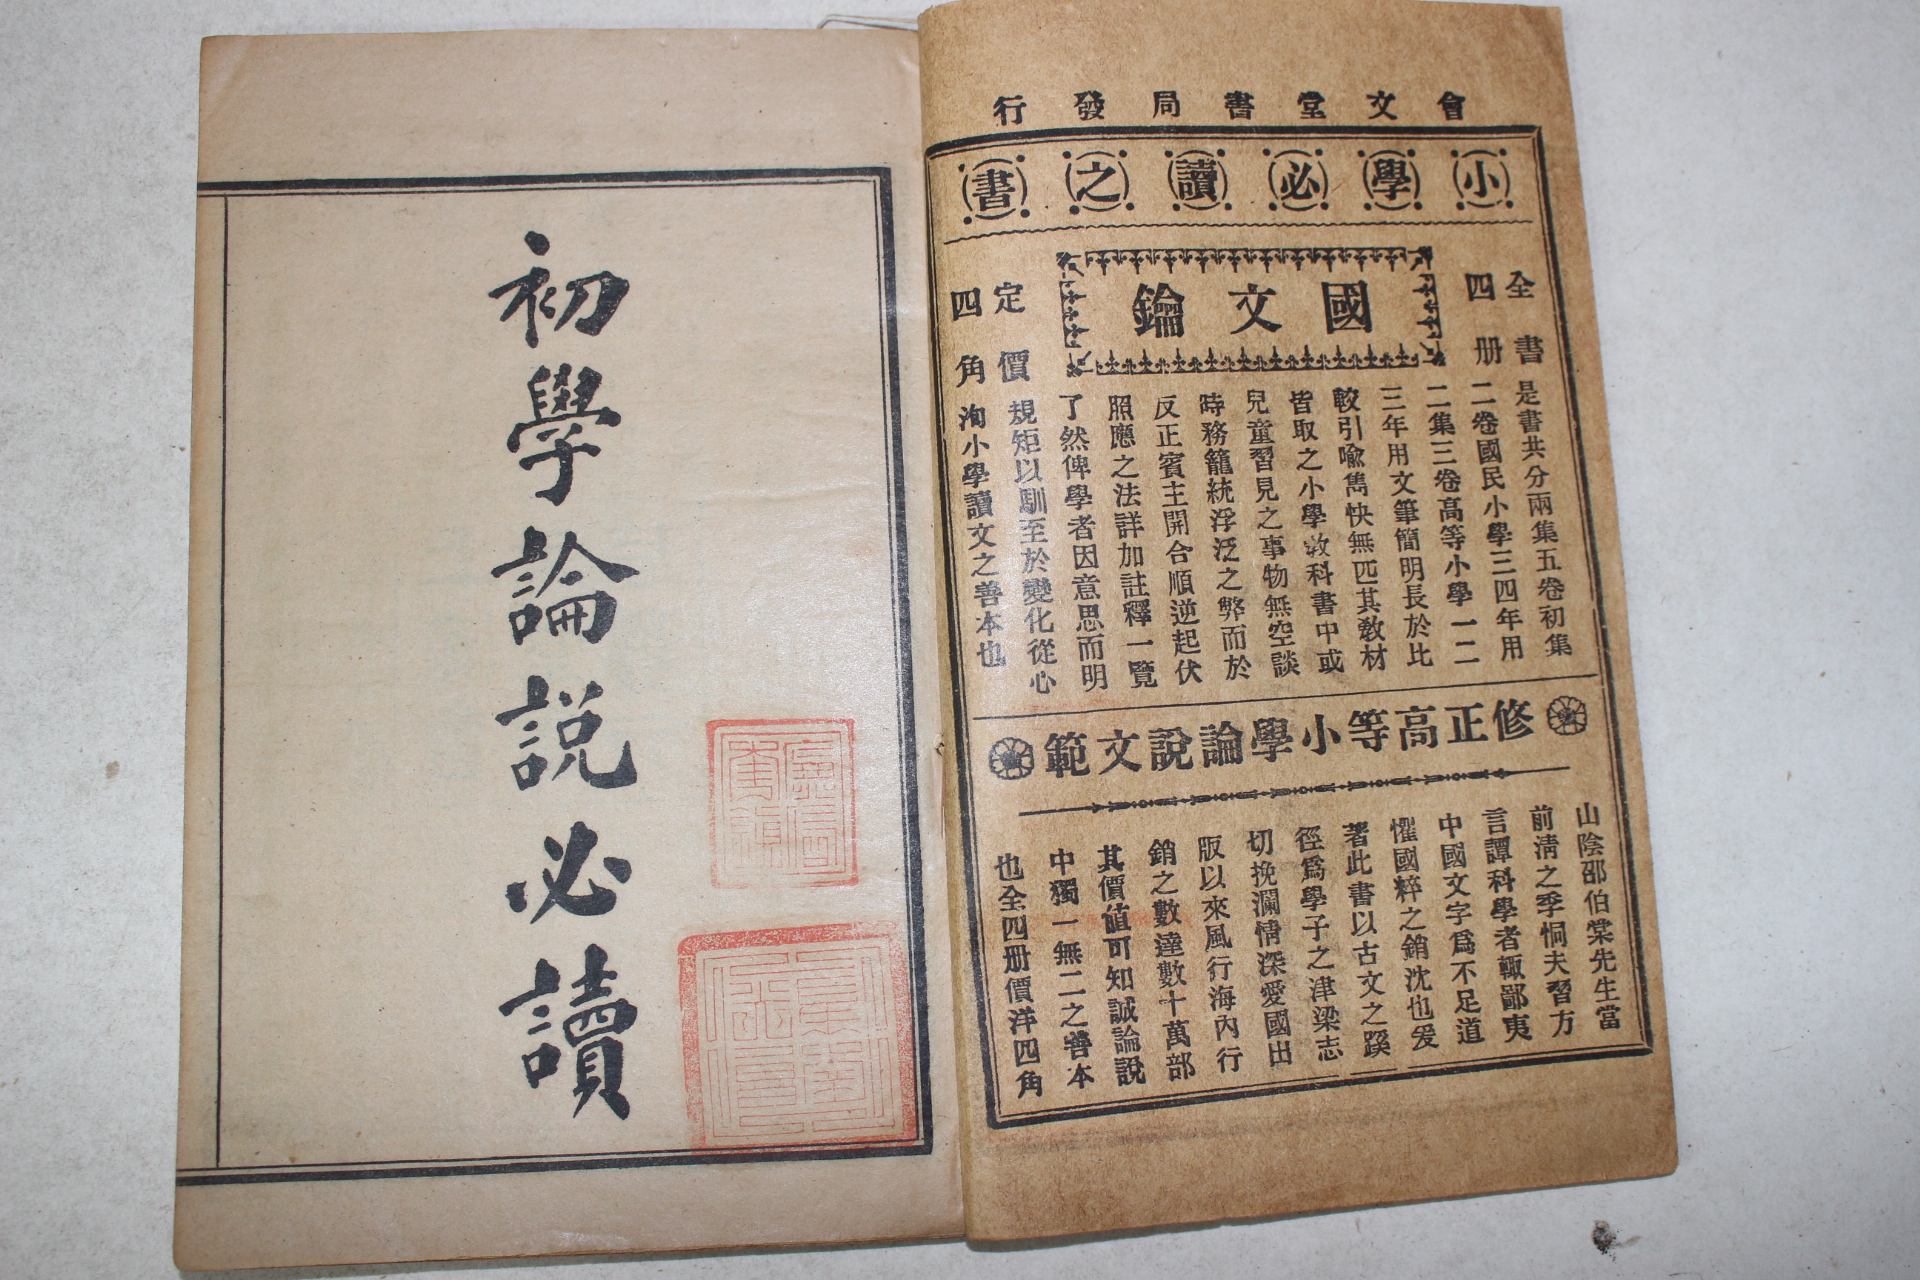 會文堂書局發行
小學必讀之書
國文鑰
全書
四册
定價
四角
是書共分兩集五卷初集
二卷國民小學三四年用
二集三卷高等小學一二
三年用文筆簡明長於比
較引喩雋快無匹其敎材
皆取之小學敎科書中或
兒童習見之事物無空談
時務籠統浮泛之弊而於
反正賓主開合順逆起伏
照應之法詳加註釋一覽
了然俾學者因意思而明
規矩以馴至於變化從心
洵小學讀文之善本也
修正高等小學論說文範
山陰邵伯棠先生當
前淸之季恫夫習方
言譚科學者輙鄙夷
中國文字爲不足道
懼國粹之銷沈也爰
著此書以古文之蹊
徑爲學子之津梁志
切挽瀾情深愛國出
版以來風行海內行
銷之數達數十萬部
其價値可知誠論說
中獨一無二之善本
也全四册價洋四角
初學論説必讀